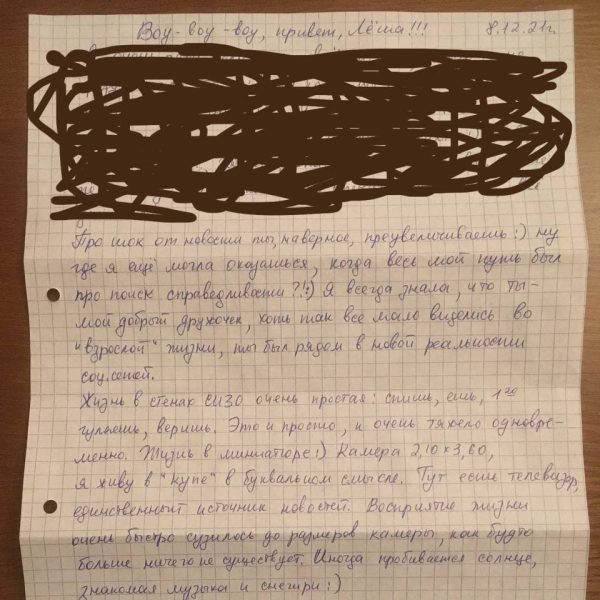 Воу-воу-воу, привет, Лёша!!! 8.12.21г.
Про шок от новости ты, наверное, преувеличиваешь :) ну
где я ещё могла оказаться, когда весь мой путь был
про поиск справедливости?!:) Я всегда знала, что ты-
мой добрый дружочек, хоть так всё мало виделись во
"взрослой" жизни, ты был рядом в новой реальности
соц.сетей.
Жизнь в стенах СИЗО очень простая: спишь, ешь, 1
гуляешь, веришь. Это и просто, и очень тяжело одновре-
менно. Жизнь в миниатюре:) Камера 2,10x3,60,
я живу в "купе" в буквальном смысле. Тут есть телевизор,
единственный источник новостей. Восприятие жизни
очень быстро сузилось до размеров камеры, как будто
больше ничего не существует. Иногда пробивается солнце,
знакомая музыка и снегири:)